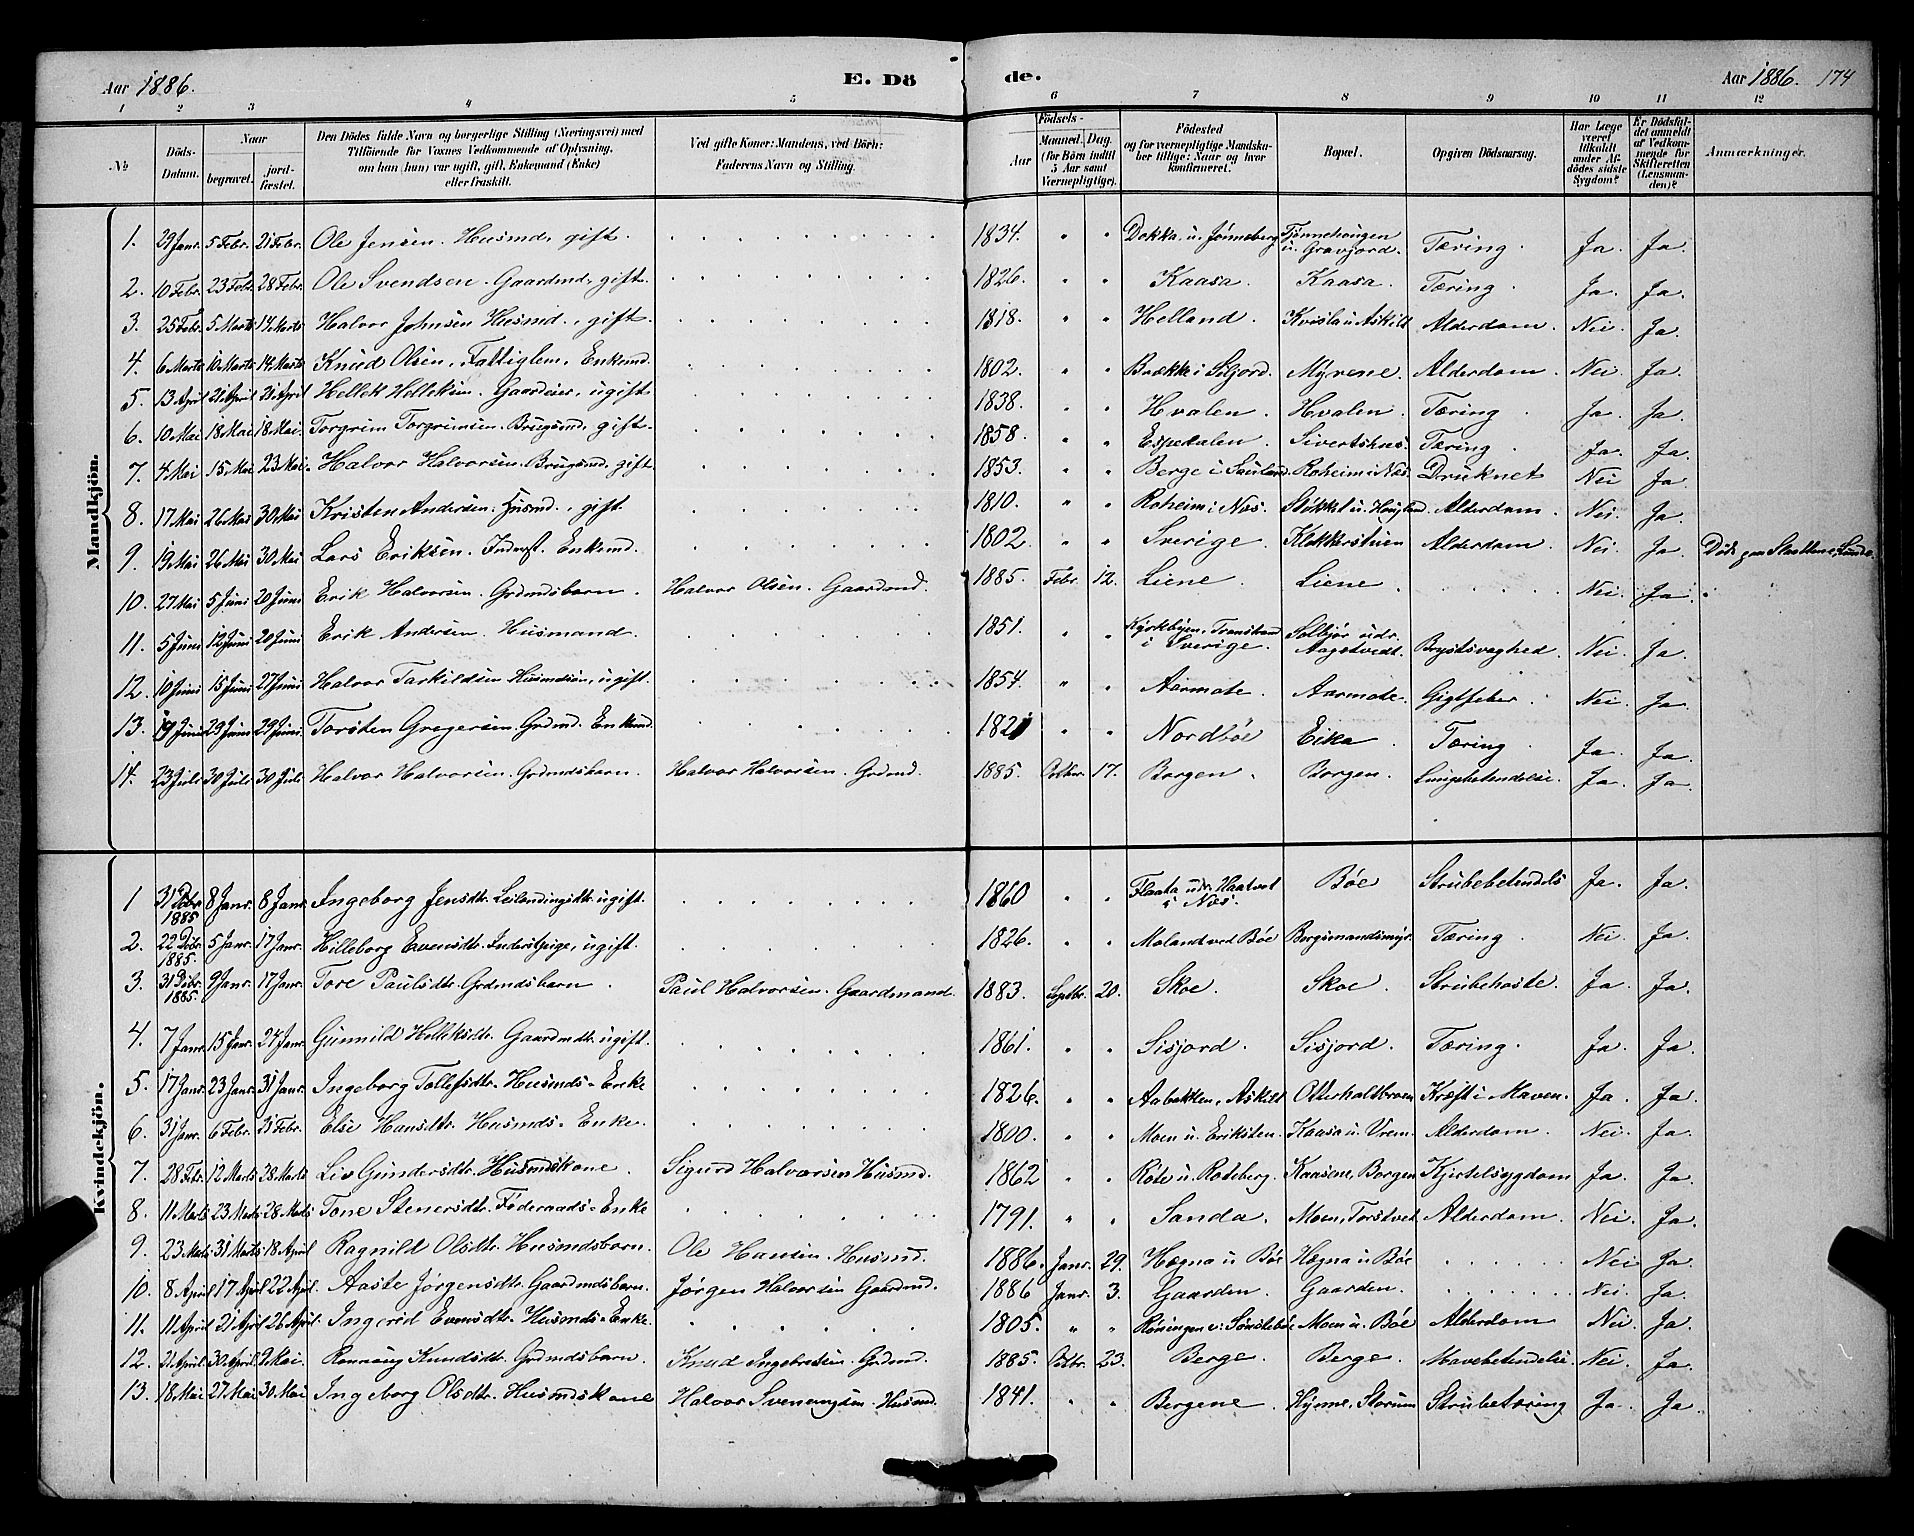 Aar 1886. E. Dö de. Aar 1886. 174
1 2 3 4 5 6 7 8 9 10 11 12
No
Döds-Datum.
Naar
begravet.
jord-fæstet.
Den Dödes fulde Navn og borgerlige Stilling (Næringsvei) med
Tilföiende for Voxnes Vedkommende af Oplysning,
om han (hun) var ugift, gift, Enkemand (Enke)
eller fraskilt.
Ved gifte Koner: Mandens, ved Börn:
Faderens Navn og Stilling.
Födsels-
Aar
Maaned. Dag.
(for Börn indtil
5 Aar samt
Værnepligtige).
Födested
og for værnepligtige Mandska-
ber tillige: Naar og hvor
konfirmeret.
Bopæl.
Opgiven Dödsaarsag.
Har Læge
været
tilkaldt
under Af-
dödes sidste
Sygdom?
Er Dödsfal-
det anmeldt
af Vedkom-
mende for
Skifteretten
(Lensman-
den)?
Anmærkninger.
Mandkjön.
1. 29 Janr. 5 Febr. 21 Febr. Ole Jensen. Husmd, gift. 1834. " " Dokka u. Jønneberg Tjønnehaugen u. Gravjord. Tæring. Ja. Ja.
2. 10 Febr. 23 Febr. 28 Febr. Ole Svendsen. Gaardmd, gift. 1826. " " Kaasa. Kaasa. Tæring. Ja. Ja.
3. 25 Febr. 5 Marts 14 Marts Halvor Johnsen Husmd., gift. 1818. " " Helland. Kvisla u Askild Alderdom. Nei. Ja.
4. 6 Marts 10 Marts 14 Marts Knud Olsen, Fattiglem, Enkemd. 1802. " " Brække i Siljord. Myrene. Alderdom. Nei. Ja.
5. 13 April 21 April 21 April Hellek Helleksen. Gaardeier, ugift 1838. " " Hvalen. Hvalen. Tæring. Ja. Ja.
6. 10 Mai 18 Mai 18 Mai. Torgrim Torgrimsen. Brugsmd, gift. 1858. " " Espedalen. Sivertshus. Tæring. Ja. Ja.
7. 4 Mai 15 Mai 23 Mai. Halvor Halvorsen. Brugsmd, gift 1853. " " Berge i Sauland. Roheim i Næs. Druknet Nei Ja.
8. 17 Mai 26 Mai 30 Mai Kristen Andersen. Husmd., gift. 1810. " " Roheim i Næs. Stokkel u. Haugland. Alderdom. Nei. Ja.
9. 19 Mai 26 Mai 30 Mai Lars Eriksen. Inderst. Enkemd. 1802. " " Sverige. Klokkerstuen Alderdom. Nei. Ja. Død paa Slaattene, Lunde.
10. 27 Mai 5 Juni 20 Juni Erik Halvorsen. Grdmdsbarn. Halvor Olsen. Gaardmd. 1885. Febr. 12. Liene. Liene. Nei. Ja.
11. 5 Juni 12 Juni 20 Juni Erik Andersen. Husmand. 1851. " " Kyrkbyen, Transtrand i Sverige. Solbjør udr. Aagetvedt. Brystsvaghed. Nei. Ja.
12. 10 Juni 15 Juni 27 Juni Halvor Tarkildsen Husmdsøn, ugift. 1854. " " Aarmote. Aarmote. Gigtfeber. Nei. Ja.
13. 19 Juni 29 Juni 29 Juni. Torsten Gregersen. Grdmd. Enkemd. 1821 " " Nordbøe Eika. Tæring. Ja. Ja.
14. 23 Juli 30 Juli 30 Juli Halvor Halvorsen. Grdmdsbarn. Halvor Halvorsen. Grdmd. 1885. Octbr. 17. Borgen. Borgen. Lungebetendelse. Ja. Ja.
Kvindekjön.
1 31 Dcbr. 1885 8 Janr. 8 Janr. Ingeborg Jensdtr. Leilændingsdtr. ugift. 1860 " " Flaata udr. Haatvet i Næs. Bøe Strubebetendels Ja. Ja.
2. 22 Dcbr. 1885. 5 Janr. 17 Janr. Hilleborg Evensdtr. Inderstpige, ugift. 1826. " " Moland ved Bøe Bergsmandsmyr. Tæring. Nei. Ja.
3. 31 Dcbr. 1885. 9 Janr. 17 Janr. Tore Paulsdtr. Grdmdsbarn. Paul Halvorsen. Gaardmand. 1883. Septbr. 20. Skoe. Skoe. Strubehoste. Ja. Ja.
4. 7 Janr. 15 Janr. 24 Janr. Gunnild Helleksdtr. Gaardmdtr. ugift. 1861. " " Sisjord. Sisjord. Tæring. Ja. Ja.
5. 17 Janr. 23 Janr. 31 Janr. Ingeborg Tollefsdtr. Husmds-Enke 1826. " " Aabakken, Askild Otterholtbroen Kræft i Maven. Ja. Ja.
6. 31 Janr. 6 Febr. 21 Febr. Else Hansdtr. Husmds-Enke. 1800. " " Moen u. Eriksten. Kaasa u. Vrem. Alderdom. Nei. Ja.
7. 28 Febr. 12 Marts 28 Marts Liv Gundersdtr. Husmdskone. Sigurd Halvorsen Husmd. 1862 " " Røte u. Roteberg. Kaasene, Borgen Kjertelsygdom Ja. Ja.
8. 11 Marts 23 Marts 28 Marts Tone Stenersdtr. Føderaads-Enke 1791. " " Sanda. Moen, Torstvet Alderdom. Nei. Ja.
9. 23 Marts 31 Marts 18 April Ragnild Olsdtr. Husmdsbarn. Ole Hansen. Husmd. 1886. Janr. 29. Hægna u Bøe Hægna u Bøe Nei Ja.
10. 8 April 17 April 22 April. Aaste Jørgensdtr. Gaardmdsbarn. Jørgen Halvorsen Gaardmd. 1886 Janr. 3. Gaarden. Gaarden. Nei. Ja.
11. 11 April 21 April 26 April. Ingerid Evensdtr. Husmds-Enke. 1805. " " Røningen v: Sønstebøe Moen u. Bøe Alderdom Nei Ja.
12. 21 April. 30 April. 9 Mai. Rønnoug Knudsdtr. Grdmdsbarn. Knud Ingebretsen. Grdmd. 1885. Octbr. 23. Berge. Berge. Mavebetendelse. Nei. Ja.
13. 18 Mai 27 Mai 30 Mai Ingeborg Olsdtr. Husmdskone Halvor Svenungsen. Husmd. 1841. " " Bergene. Hynne, Storum Strubetæring Ja. Ja.